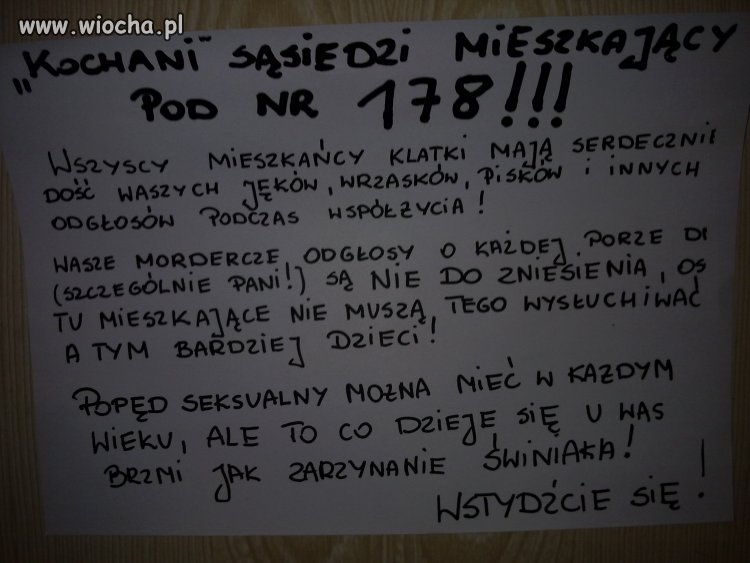 www.wiocha.pl
„KOCHANI" SĄSIEDZI MIESZKAJĄCY
POD NR 178!!!
WSZYSCY MIESZKAŃCY KLATKI MAJĄ SERDECZNIE
DOŚĆ WASZYCH JĘKÓW, WRZASKÓW, PISKÓW I INNYCH
ODGŁOSÓW PODCZAS WSPÓŁŻYCIA!
WASZE MORDERCZE ODGŁOSY O KAŻDEJ PORZE
(SZCZEGÓLNIE PANI!) SĄ NIE DO ZNIESIENIA,
TU MIESZKAJĄCE NIE MUSZĄ TEGO WYSŁUCHIWAĆ
A TYM BARDZIEJ DZIECI!
POPĘD SEKSUALNY MOŻNA MIEĆ W KAŻDYM
WIEKU, ALE TO CO DZIEJE SIĘ U WAS
BRZMI JAK ZARZYNANIE ŚWINIAKA!
WSTYDŹCIE SIĘ!